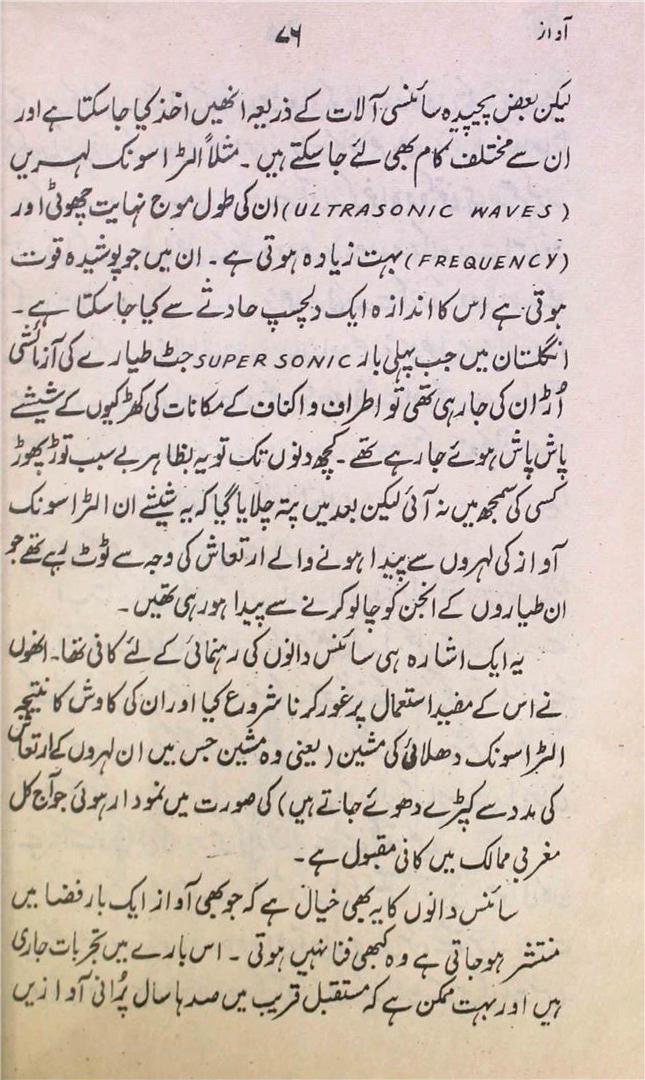 آواز
۷۶
لیکن بعض پیچیدہ سائنسی آلات کے ذریعہ انھیں اخذ کیا جاسکتا ہے اور
ان سے مختلف کام بھی لئے جاسکتے ہیں ۔ مثلاً الٹراسونک لہریں
(ULTRASONIC WAVES) ان کی طول موج نہایت چھوٹی اور
(FREQUENCY) بہت زیادہ ہوتی ہے ۔ ان میں جو پوشیدہ قوت
ہوتی ہے اس کا اندازہ ایک دلچسپ حادثے سے کیا جاسکتا ہے ۔
انگلستان میں جب پہلی بار SUPER SONIC جٹ طیارے کی آزمائشی
اُڑان کی جارہی تھی تو اطراف و اکناف کے مکانات کی کھڑکیوں کے شیشے
پاش پاش ہوئے جارہے تھے ۔ کچھ دنوں تک تو یہ بظاہر بے سبب توڑ پھوڑ
کسی کی سمجھ میں نہ آئی لیکن بعد میں پتہ چلایا گیا کہ یہ شیشے ان الٹراسونک
آواز کی لہروں سے پیدا ہونے والے ارتعاش کی وجہ سے ٹوٹ رہے تھے جو
ان طیاروں کے انجن کو چالو کرنے سے پیدا ہورہی تھیں ۔
یہ ایک اشارہ ہی سائنس دانوں کی رہنمائی کے لئے کافی تھا۔ انھوں
نے اس کے مفید استعمال پر غور کرنا شروع کیا اور ان کی کاوش کا نتیجہ
الٹراسونک دھلائی کی مشین (یعنی وہ مشین جس میں ان لہروں کے ارتعاش
کی مدد سے کپڑے دھوئے جاتے ہیں) کی صورت میں نمودار ہوئی جو آج کل
مغربی ممالک میں کافی مقبول ہے ۔
سائنس دانوں کا یہ بھی خیال ہے کہ جو بھی آواز ایک بار فضا میں
منتشر ہوجاتی ہے وہ کبھی فنا نہیں ہوتی ۔ اس بارے میں تجربات جاری
ہیں اور بہت ممکن ہے کہ مستقبل قریب میں صدہا سال پُرانی آوازیں